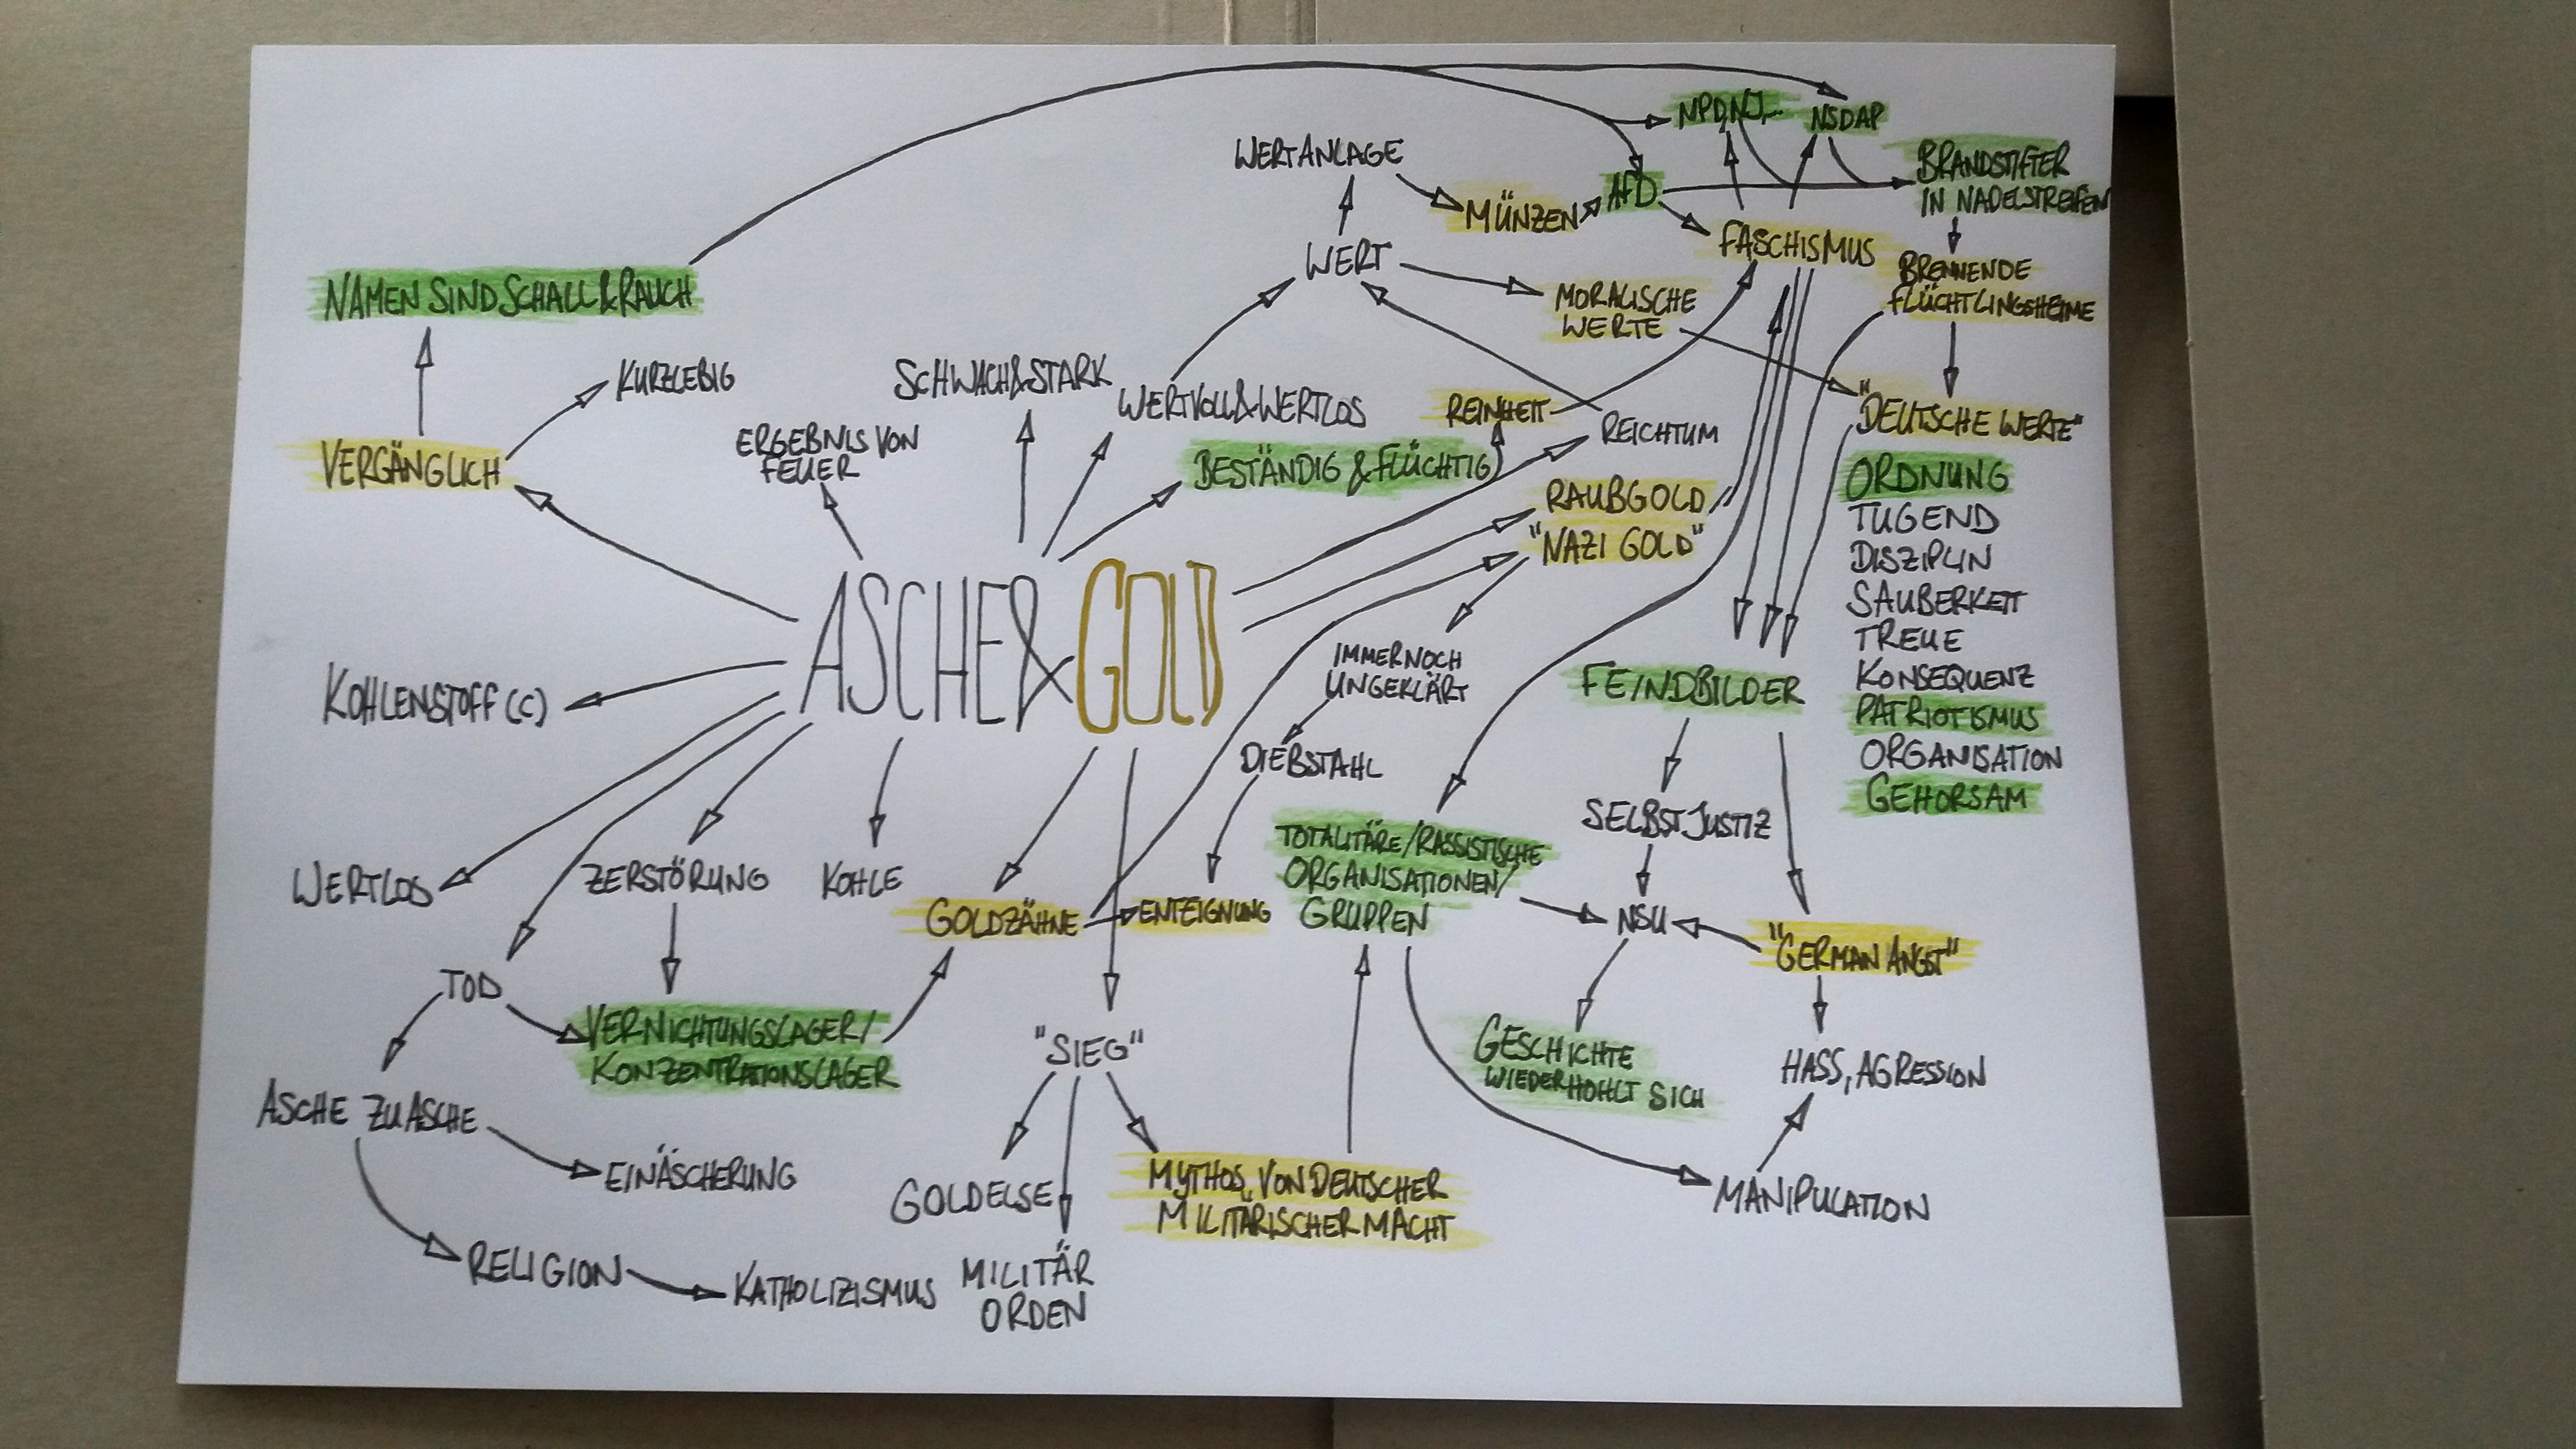 NPD, NJ,...
NSDAP
WERTANLAGE
BRANDSTIFTER
IN NADELSTREIFEN
MÜNZEN
AfD
FASCHISMUS
WERT
BRENNENDE
FLÜCHTLINGSHEIME
NAMEN SIND SCHALL & RAUCH
MORALISCHE
WERTE
KURZLEBIG
SCHWACH & STARK
WERTVOLL & WERTLOS
REINHEIT
REICHTUM
"DEUTSCHE WERTE"
ERGEBNIS VON
FEUER
VERGÄNGLICH
BESTÄNDIG & FLÜCHTIG
ORDNUNG
TUGEND
DISZIPLIN
SAUBERKEIT
TREUE
KONSEQUENZ
PATRIOTISMUS
ORGANISATION
GEHORSAM
RAUBGOLD
"NAZI GOLD"
ASCHE & GOLD
IMMERNOCH
UNGEKLÄRT
FEINDBILDER
KOHLENSTOFF (C)
DIEBSTAHL
SELBSTJUSTIZ
WERTLOS
ZERSTÖRUNG
KOHLE
GOLDZÄHNE
ENTEIGNUNG
TOTALITÄRE/RASSISTISCHE
ORGANISATIONEN/
GRUPPEN
NSU
"GERMAN ANGST"
TOD
VERNICHTUNGSLAGER/
KONZENTRATIONSLAGER
"SIEG"
GESCHICHTE
WIEDERHOHLT SICH
HASS, AGRESSION
ASCHE ZU ASCHE
EINÄSCHERUNG
GOLDELSE
MYTHOS, VON DEUTSCHER
MILITÄRISCHER MACHT
MANIPULATION
RELIGION
KATHOLIZISMUS
MILITÄR
ORDEN